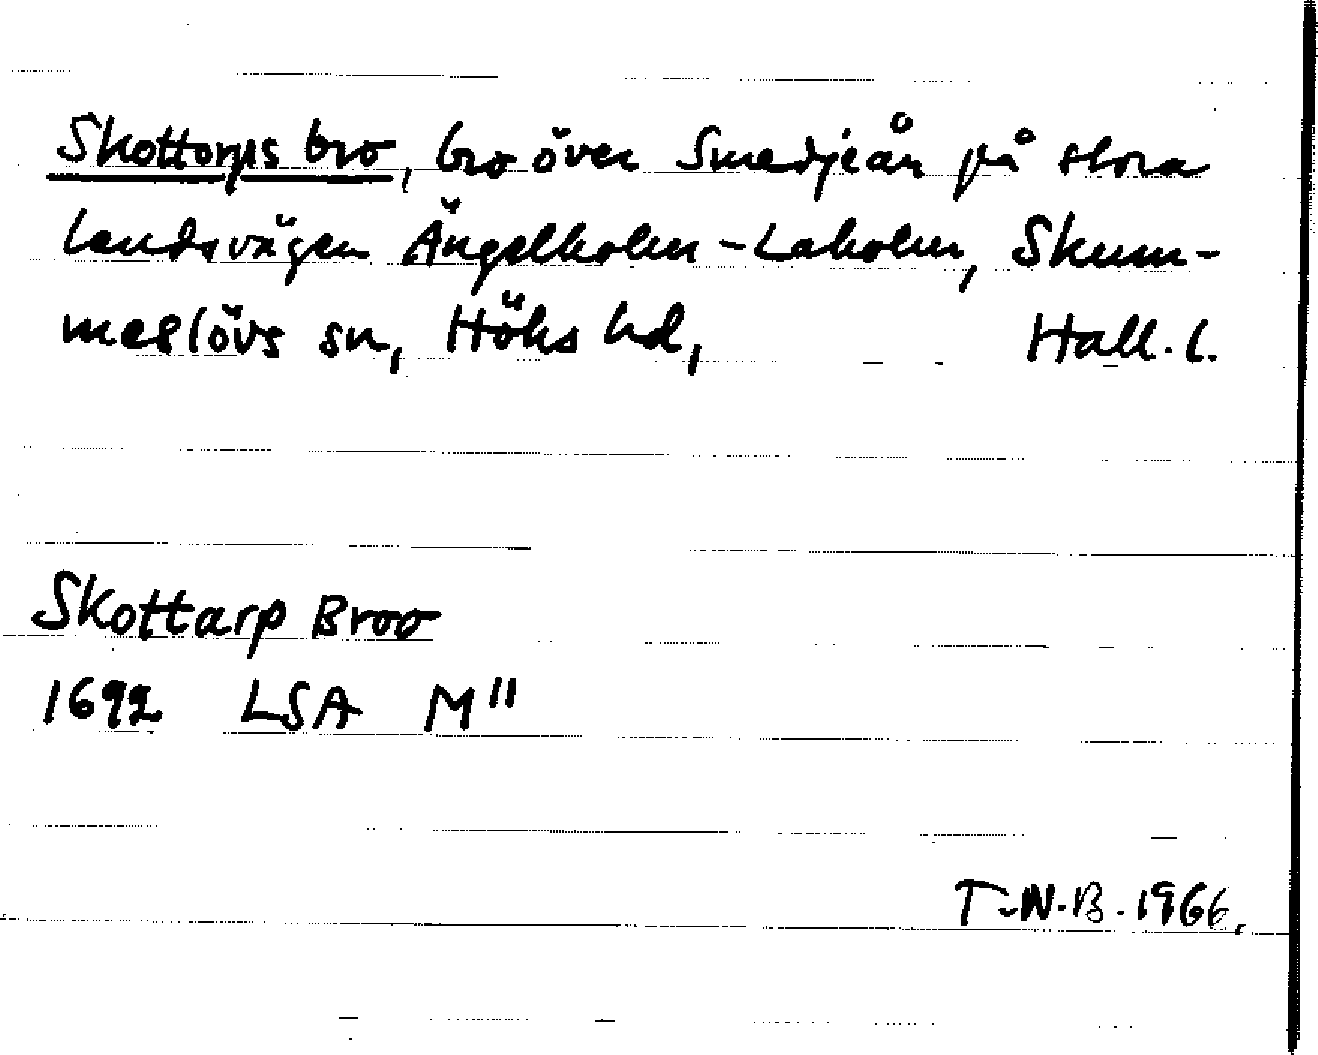 Skottorps bro, bro över Smedjeån på stora
landsvägen Ängelholm-Laholm, Skum-
meslövs sn, Höks hd, Hall. l.
Skottarp Broo
1692 LSA M11
T.N.B. 1966.